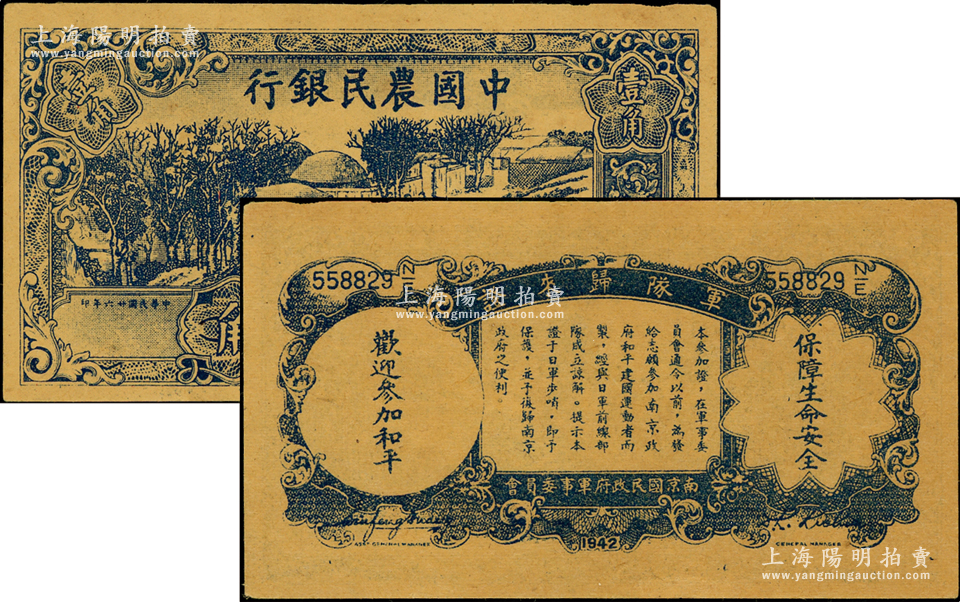 上海陽明拍賣
www.yangmingauction.com
中國農民銀行
壹角
壹角
中華民國廿六年印
角
558829 N/E
558829 N/E
軍隊歸來
保障生命安全
本參加證，在軍事委
員會通令以前，為發
給志願參加南京政
府和平建國運動者而
製，經與日軍前線部
隊成立諒解。提示本
證于日軍步哨，即予
保護，並予復歸南京
政府之便利。
歡迎參加和平
南京國民政府軍事委員會
ASST GENERAL MANAGER
1942
GENERAL MANAGER
上海陽明拍賣
www.yangmingauction.com
上海陽明拍賣
www.yangmingauction.com